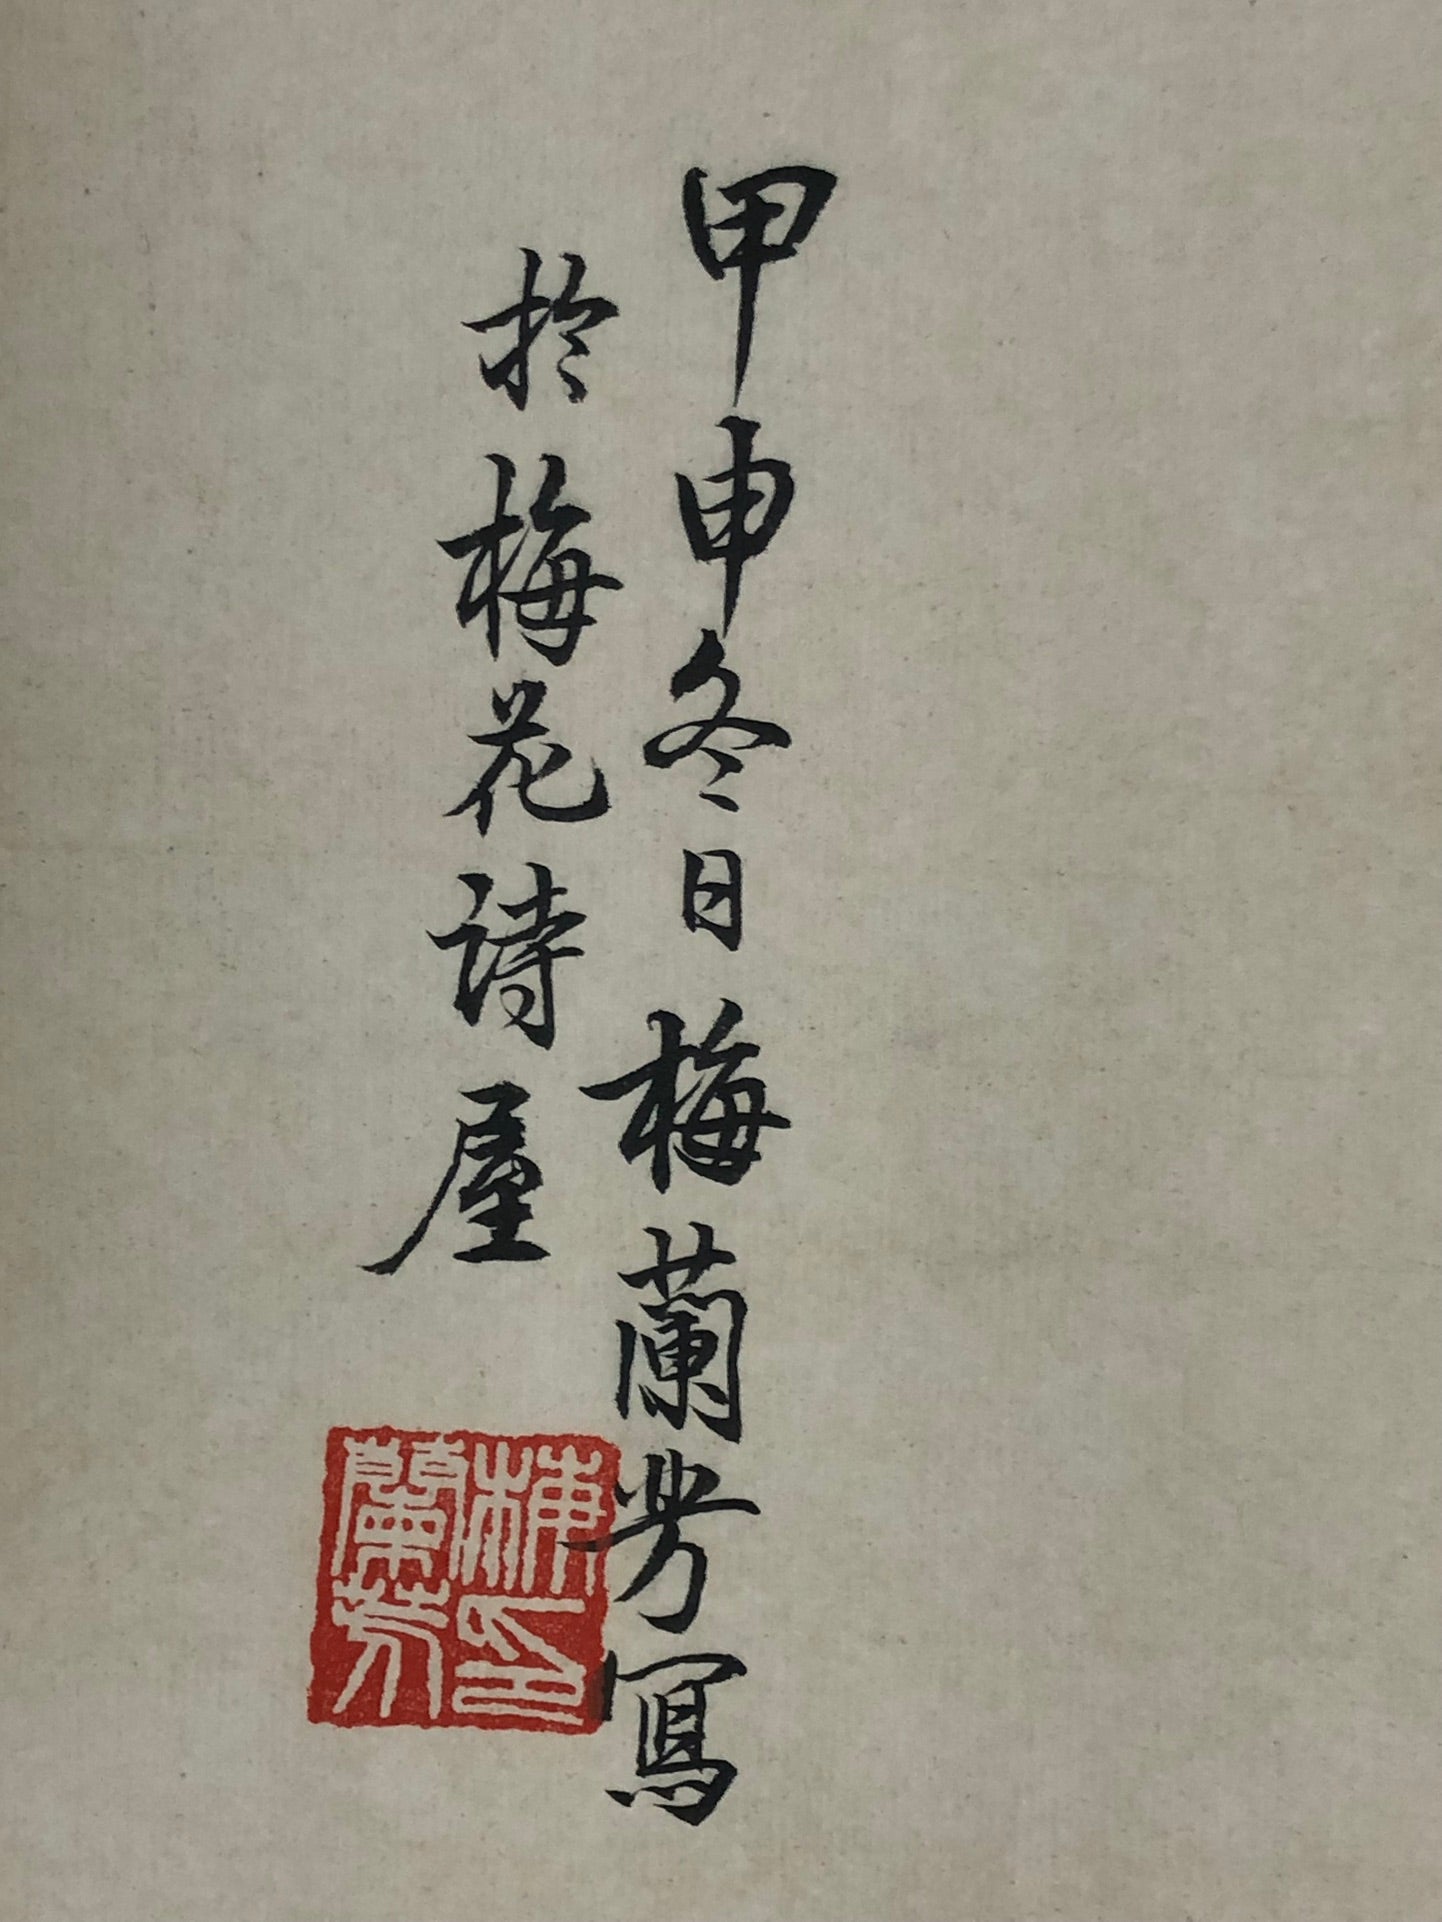 甲申冬日梅蘭芳寫
於梅花詩屋
梅蘭芳印